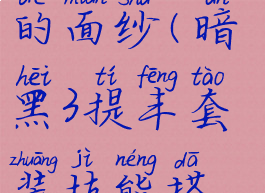 de miàn shā àn
的面纱(暗
hēi tí fēng tào
黑3提丰套
zhuāng jì néng dā
装技能搭